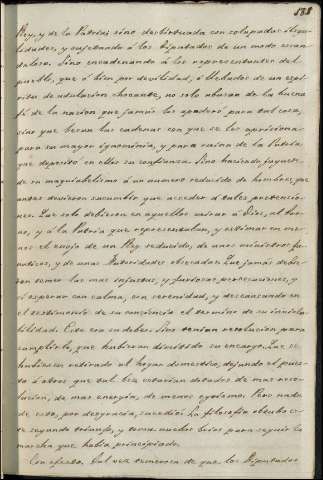 538
Rey, y de la Patria; sino desvirtuada con solapadas iliqui-
lidades, y sujetando á los Diputados de un modo escan-
daloso. Sino encadenando á los representantes del
pueblo, que ó bien por devilidad, ó llebados de un espi-
ritu de adulacion chocante, no solo abusan de la buena
fé de la nacion que jamás les apoderó para tal cosa,
sino que besan las cadenas con que se les aprisiona
para su mayor ignominia, y para ruina de la Patria
que depositó en ellos su confianza. Sino haciendo juguete
de su maquiabelismo á un numero reducido de hombres, que
antes devieron sucumbir que acceder á tales pretencio-
nes. Que solo debieron en aquellos mirar á Dios, al tro-
no, y á la Patria que representaban, y estimar en me-
nos el enojo de un Rey seducido, de unos ministros fa-
naticos, y de unas Autoridades obcecadas. Que jamás debie-
ron temer las mas injustas, y furiosas persecuciones, y
si esperar con calma, con serenidad, y descansando en
el testimonio de su conciencia el termino de su inviola-
bilidad. Este era su deber. Sino tenian resolucion para
cumplirlo, que hubieran dimitido su encargo. Que se
hubiesen retirado al hogar domestico, dejando el pues-
to á otros que tal vez estarian dotados de mas reso-
lucion, de mas energia, de menos egoismo. Pero nada
de esto, por desgracia, sucedió. La filosofia obtubo es-
te segundo triunfo, y tomó muchos brios para seguir la
marcha que habia principiado.
Con efecto. Tal vez temerosa de que los Diputados